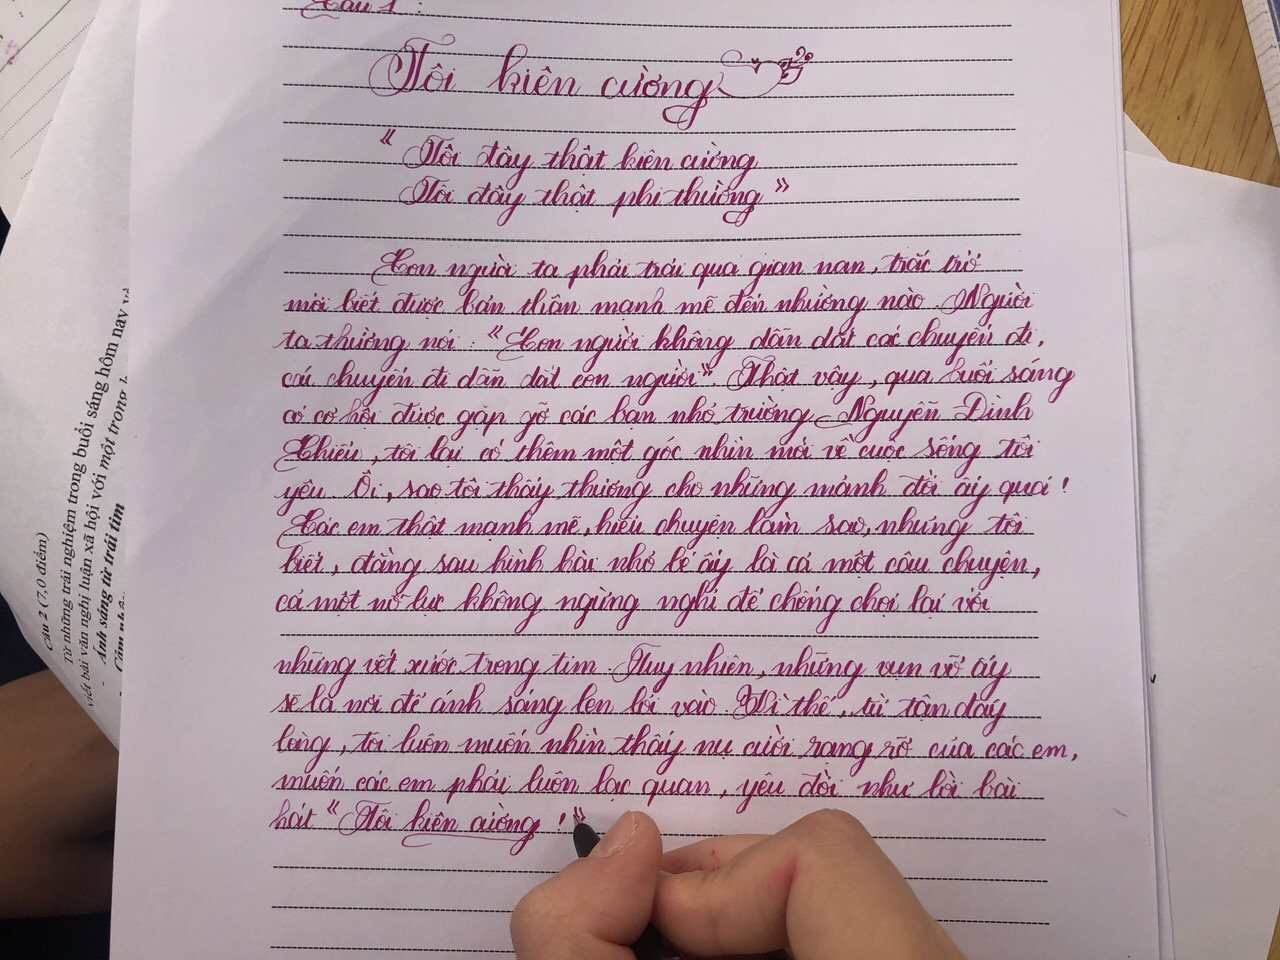 Câu 1 :
Tôi kiên cường
“ Tôi đây thật kiên cường
Tôi đây thật phi thường ”
Con người ta phải trải qua gian nan, trắc trở
mới biết được bản thân mạnh mẽ đến nhường nào. Người
ta thường nói : “ Con người không dẫn dắt các chuyến đi,
các chuyến đi dẫn dắt con người”. Thật vậy, qua buổi sáng
có cơ hội được gặp gỡ các bạn nhỏ trường Nguyễn Đình
Chiểu, tôi lại có thêm một góc nhìn mới về cuộc sống tôi
yêu. Ôi, sao tôi thấy thương cho những mảnh đời ấy quá !
Các em thật mạnh mẽ, hiểu chuyện làm sao, nhưng tôi
biết, đằng sau hình hài nhỏ bé ấy là cả một câu chuyện,
cả một nỗ lực không ngừng nghỉ để chống chọi lại với
những vết xước trong tim. Tuy nhiên, những vụn vỡ ấy
sẽ là nơi để ánh sáng len lỏi vào. Vì thế, từ tận đáy
lòng, tôi luôn muốn nhìn thấy nụ cười rạng rỡ của các em,
muốn các em phải luôn lạc quan, yêu đời như lời bài
hát “ Tôi kiên cường ! ”
Câu 2 (7,0 điểm)
Từ những trải nghiệm trong buổi sáng hôm nay
viết bài văn nghị luận xã hội với một trong
- Ánh sáng từ trái tim